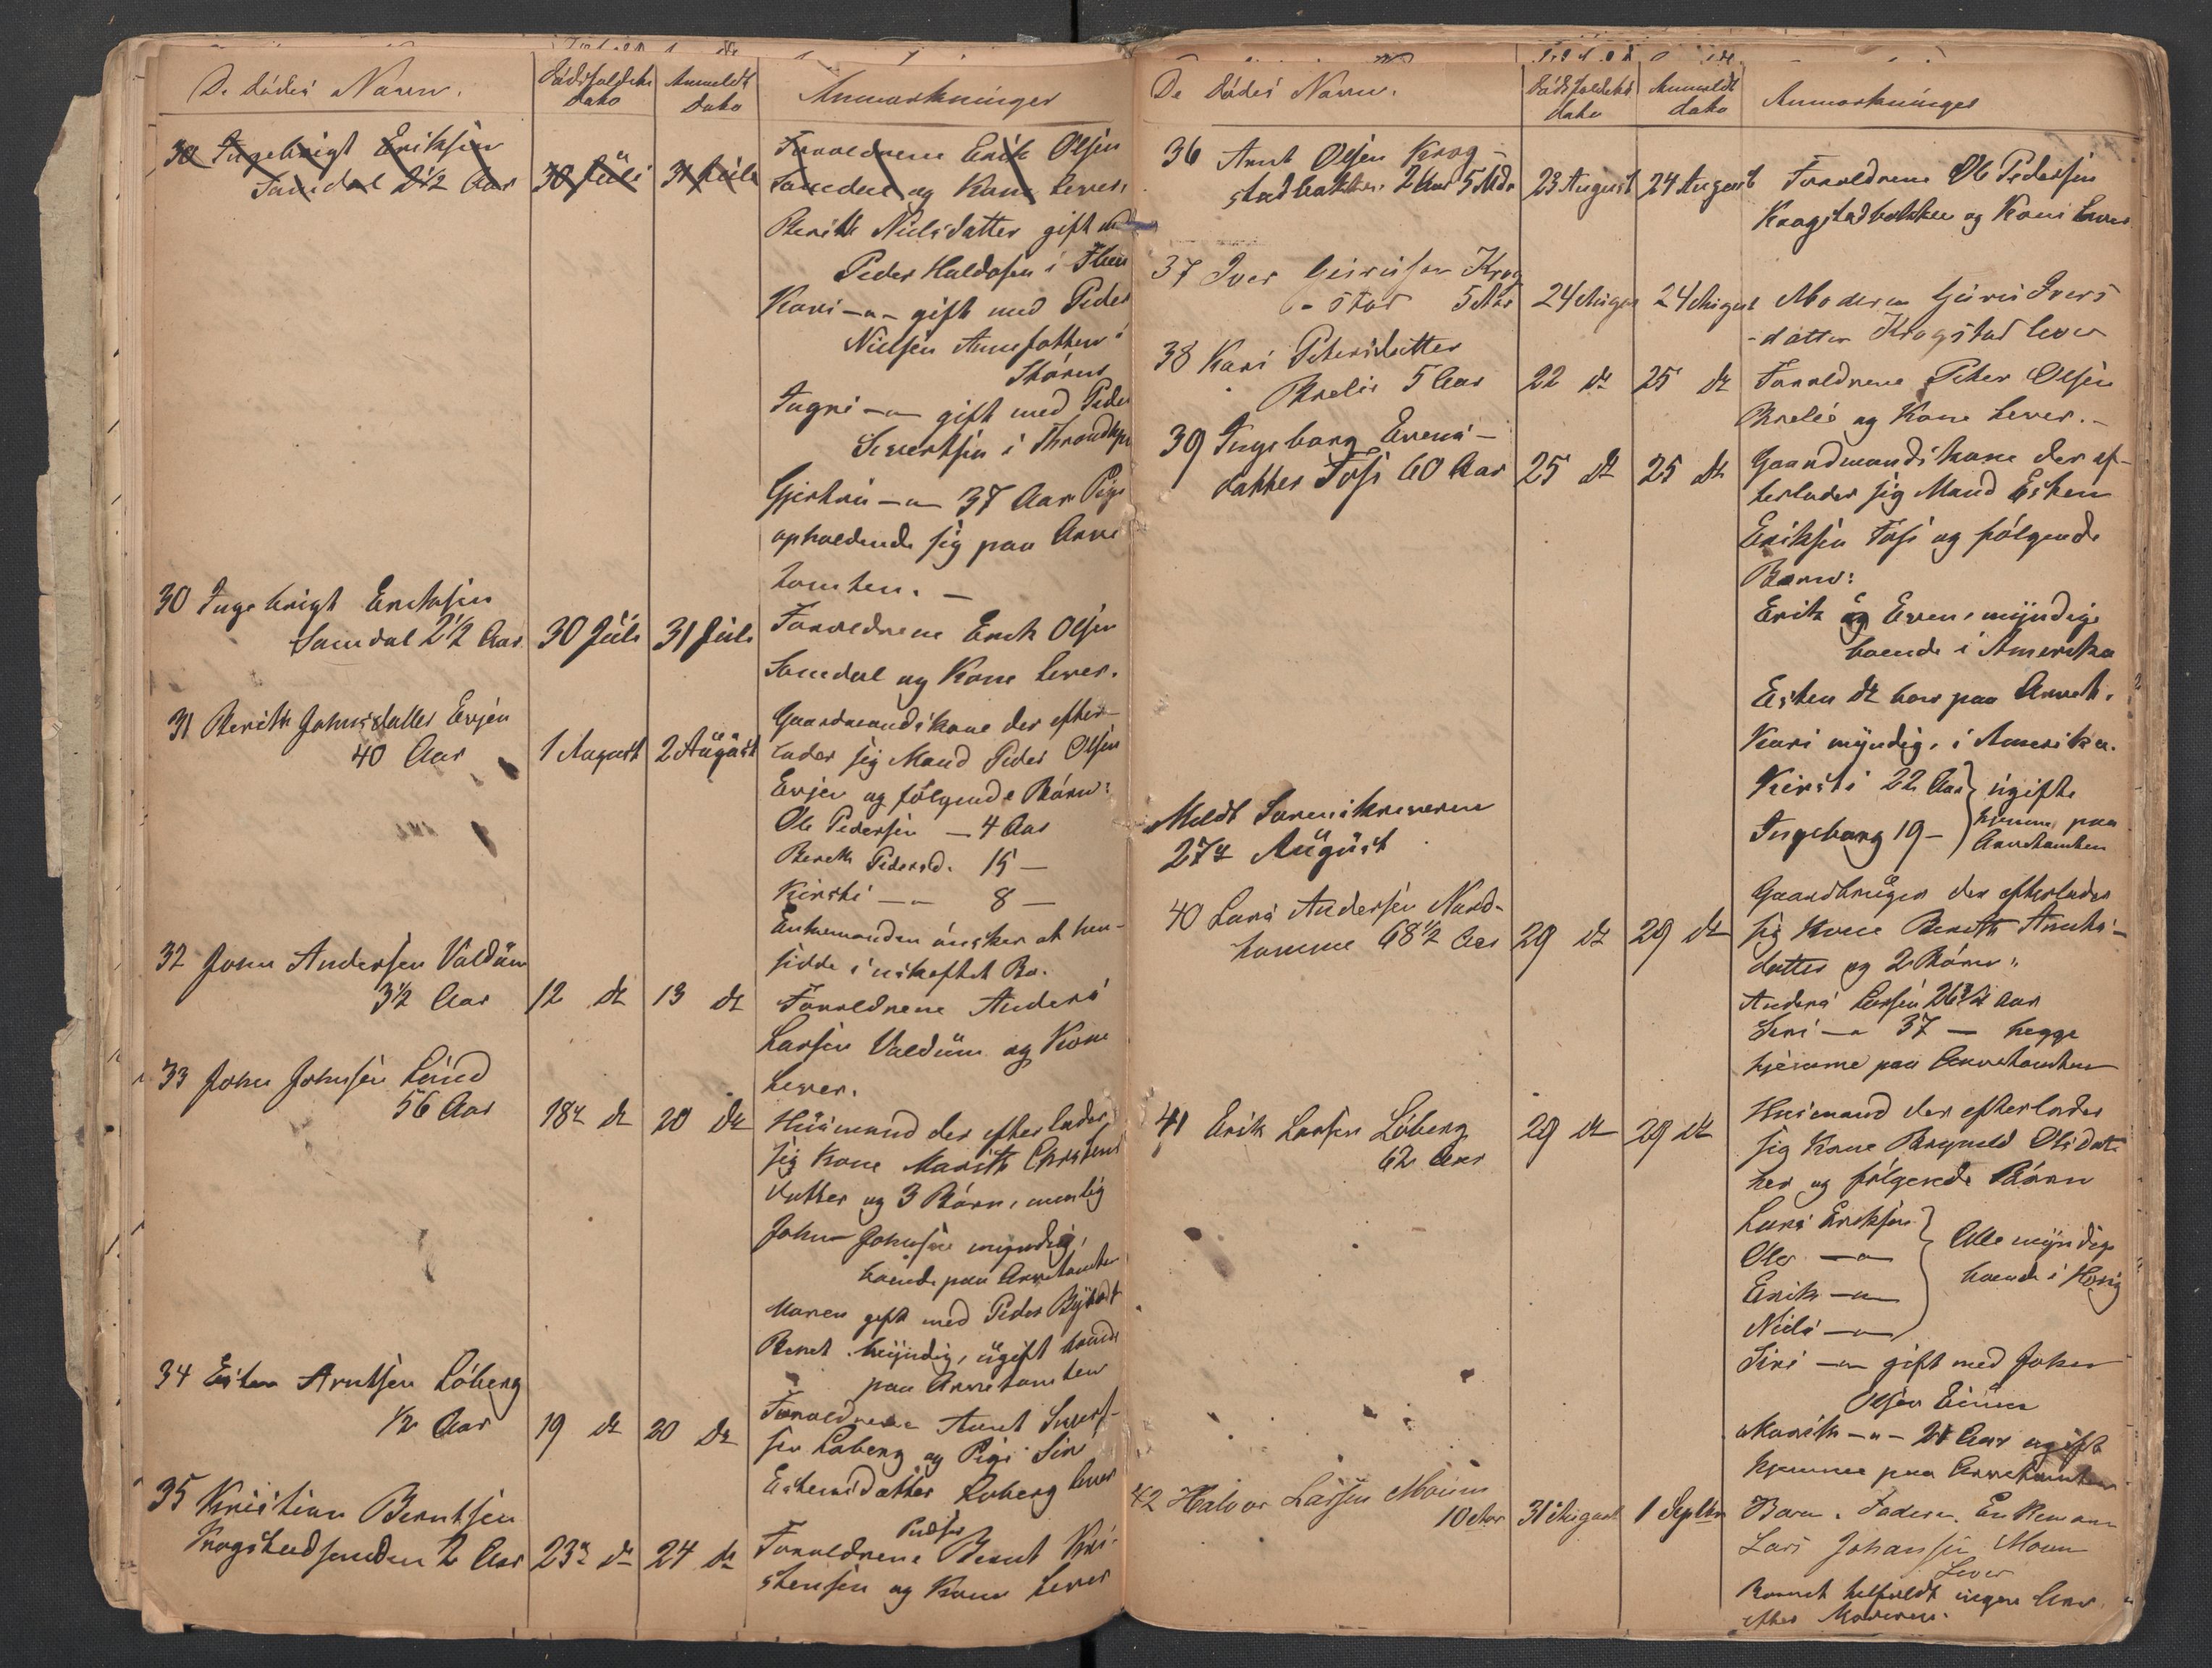 De Dødes Navn.
Dødsfaldets
Dato
Anmeldt
Dato
Anmærkninger
30 Ingebrigt Eriksen
Samdal 2 1/2 Aar
30 Juli
31 Juli
Forældrene Erik Olsen
Samdal og Kone lever.
Berith Nielsdatter gift med
Peder Haldosen i
Kari —"— gift med Peder
Nielsen i
Størens
Ingri —"— gift med Peder
Sivertsen i Throndhjem
Gjertru —"— 37 Aar Pige
opholdende sig paa Arne
tomten. —
30 Ingebrigt Eriksen
Samdal 2 1/2 Aar
30 Juli
31 Juli
Forældrene Erik Olsen
Samdal og Kone lever.
31 Berith Johnsdatter Evjen
40 Aar
1 August
2 August
Gaardmandskone der efter-
lader sig Mand Peder Olsen
Evjen og følgende Børn:
Ole Pedersen — 4 Aar
Berith Pedersd. 15 —
Kirsti —"— 8 —
Enkemanden ønsker at hen-
sidde i uskiftet Bo.
32 John Andersen Valdum
3 1/2 Aar
12 dt
13 dt
Forældrene Anders
Larsen Valdum og Kone
lever.
33 John Johnsen Lund
56 Aar
18de dt
20 dt
Husmand der efterlader
sig Kone Marith
datter og 3 Børn, nemlig
John Johnsen myndig,
boende paa Arnetomten
Maren gift med Peder
Beret myndig, ugift boende
paa Arnetomten
34 Esten Arntsen Løberg
1/2 Aar
19 dt
20 dt
Forældrene Arnt Sivert-
sen Løberg og Pige Siri
Estensdatter Løberg lever
35 Kristian Berntsen
Krogstadsanden 2 Aar
23de dt
24 dt
Forældrene Bernt Kri-
stensen og Kone lever
De Dødes Navn.
Dødsfaldets
dato
Anmeldt
dato
Anmærkninger
36 Arnt Olsen Krog-
stadbakken 2 Aar 5 Mdr
23 August
24 August
Forældrene Ole Pedersen
Krogstadbakken og Kone lever
37 Iver Guruson Krog
-stad 5 Aar
24 August
24 August
Moderen Guru Ivers
-datter Krogstad lever
38 Kari Petersdatter
Brelie 5 Aar
22 dt
25 dt
Forældrene Peter Olsen
Brelie og Kone lever. —
39 Ingeborg Evens-
datter Foss 60 Aar
25 dt
25 dt
Gaardmandskone der ef-
terlader sig Mand Esten
Eriksen Foss og følgende
Børn:
Erik og Even, myndige
boende i Amerika
Esten dt bor paa Arnet.
Kari myndig, i Amerika.
Kirsti 22 Aar ugifte
Ingeborg 19 — hjemme paa
Arnetomten
Meldt Sorenskriveren
27de August
40 Lars Andersen Nord-
hamme 68 1/2 Aar
29 dt
29 dt
Gaardbruger der efterlader
sig Kone Berith Arnts-
datter og 2 Børn:
Anders Larsen 26 1/2 Aar
Siri —"— 37 — begge
hjemme paa Arnetomten
41 Erik Larsen Løberg
62 Aar
29 dt
29 dt
Husmand der efterlader
sig Kone Brynild Olsdat-
ter og følgende Børn
Lars Eriksen
Ole —"—
Erik —"—
Niels —"—
Alle myndige
boende i Horg
Siri —"— gift med John
Olsen
Marith —"— 21 Aar ugift
hjemme paa Arnetomten
42 Halvor Larsen Moum
10 Aar
31 August
1 Septbr
Barn. Faderen Enkemann
Lars Johansen Moum
Lever
Barnet helfaldt ingen Arv
efter Moderen.